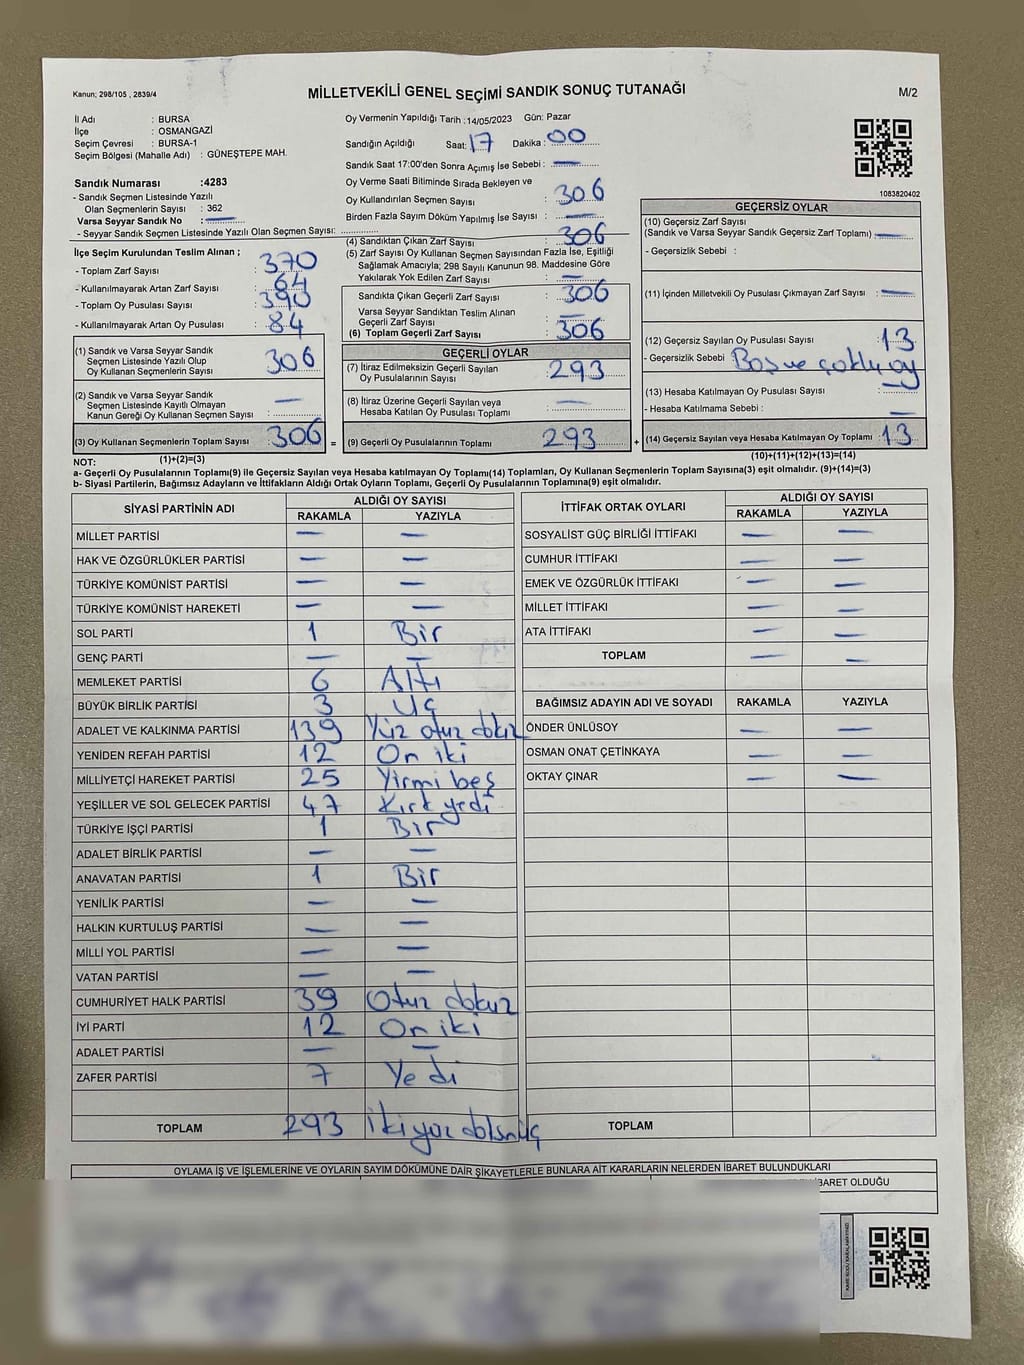 Kanun; 298/105 , 2839/4
MİLLETVEKİLİ GENEL SEÇİMİ SANDIK SONUÇ TUTANAĞI
M/2
İl Adı : BURSA
İlçe : OSMANGAZİ
Seçim Çevresi : BURSA-1
Seçim Bölgesi (Mahalle Adı) : GÜNEŞTEPE MAH.
Sandık Numarası :4283
- Sandık Seçmen Listesinde Yazılı
Olan Seçmenlerin Sayısı : 362
Varsa Seyyar Sandık No : —
- Seyyar Sandık Seçmen Listesinde Yazılı Olan Seçmen Sayısı:
Oy Vermenin Yapıldığı Tarih :14/05/2023 Gün: Pazar
Sandığın Açıldığı Saat: 17 Dakika: 00
Sandık Saat 17:00'den Sonra Açımış İse Sebebi : —
Oy Verme Saati Bitiminde Sırada Bekleyen ve
Oy Kullandırılan Seçmen Sayısı : 306
Birden Fazla Sayım Döküm Yapılmış İse Sayısı : —
1083820402
İlçe Seçim Kurulundan Teslim Alınan ;
- Toplam Zarf Sayısı : 370
- Kullanılmayarak Artan Zarf Sayısı : 64
- Toplam Oy Pusulası Sayısı : 390
- Kullanılmayarak Artan Oy Pusulası : 84
(1) Sandık ve Varsa Seyyar Sandık
Seçmen Listesinde Yazılı Olup
Oy Kullanan Seçmenlerin Sayısı : 306
(2) Sandık ve Varsa Seyyar Sandık
Seçmen Listesinde Kayıtlı Olmayan
Kanun Gereği Oy Kullanan Seçmen Sayısı : —
(3) Oy Kullanan Seçmenlerin Toplam Sayısı : 306
(1)+(2)=(3)
(4) Sandıktan Çıkan Zarf Sayısı : 306
(5) Zarf Sayısı Oy Kullanan Seçmen Sayısından Fazla İse, Eşitliği
Sağlamak Amacıyla; 298 Sayılı Kanunun 98. Maddesine Göre
Yakılarak Yok Edilen Zarf Sayısı : —
Sandıkta Çıkan Geçerli Zarf Sayısı : 306
Varsa Seyyar Sandıktan Teslim Alınan
Geçerli Zarf Sayısı : —
(6) Toplam Geçerli Zarf Sayısı : 306
GEÇERLİ OYLAR
(7) İtiraz Edilmeksizin Geçerli Sayılan
Oy Pusulalarının Sayısı : 293
(8) İtiraz Üzerine Geçerli Sayılan veya
Hesaba Katılan Oy Pusulası Toplamı : —
= (9) Geçerli Oy Pusulalarının Toplamı : 293 +
GEÇERSİZ OYLAR
(10) Geçersiz Zarf Sayısı
(Sandık ve Varsa Seyyar Sandık Geçersiz Zarf Toplamı) : —
- Geçersizlik Sebebi :
(11) İçinden Milletvekili Oy Pusulası Çıkmayan Zarf Sayısı : —
(12) Geçersiz Sayılan Oy Pusulası Sayısı : 13
- Geçersizlik Sebebi : Boş ve çoklu oy
(13) Hesaba Katılmayan Oy Pusulası Sayısı : —
- Hesaba Katılmama Sebebi : —
(14) Geçersiz Sayılan veya Hesaba Katılmayan Oy Toplamı : 13
(10)+(11)+(12)+(13)=(14)
NOT:
a- Geçerli Oy Pusulalarının Toplamı(9) ile Geçersiz Sayılan veya Hesaba katılmayan Oy Toplamı(14) Toplamları, Oy Kullanan Seçmenlerin Toplam Sayısına(3) eşit olmalıdır. (9)+(14)=(3)
b- Siyasi Partilerin, Bağımsız Adayların ve İttifakların Aldığı Ortak Oyların Toplamı, Geçerli Oy Pusulalarının Toplamına(9) eşit olmalıdır.
SİYASİ PARTİNİN ADI ALDIĞI OY SAYISI
RAKAMLA YAZIYLA
MİLLET PARTİSİ — —
HAK VE ÖZGÜRLÜKLER PARTİSİ — —
TÜRKİYE KOMÜNİST PARTİSİ — —
TÜRKİYE KOMÜNİST HAREKETİ — —
SOL PARTİ 1 Bir
GENÇ PARTİ — —
MEMLEKET PARTİSİ 6 Altı
BÜYÜK BİRLİK PARTİSİ 3 Üç
ADALET VE KALKINMA PARTİSİ 139 Yüz otuz dokuz
YENİDEN REFAH PARTİSİ 12 On iki
MİLLİYETÇİ HAREKET PARTİSİ 25 Yirmi beş
YEŞİLLER VE SOL GELECEK PARTİSİ 47 Kırk yedi
TÜRKİYE İŞÇİ PARTİSİ 1 Bir
ADALET BİRLİK PARTİSİ — —
ANAVATAN PARTİSİ 1 Bir
YENİLİK PARTİSİ — —
HALKIN KURTULUŞ PARTİSİ — —
MİLLİ YOL PARTİSİ — —
VATAN PARTİSİ — —
CUMHURİYET HALK PARTİSİ 39 Otuz dokuz
İYİ PARTİ 12 On iki
ADALET PARTİSİ — —
ZAFER PARTİSİ 7 Yedi
TOPLAM 293
İTTİFAK ORTAK OYLARI ALDIĞI OY SAYISI
RAKAMLA YAZIYLA
SOSYALİST GÜÇ BİRLİĞİ İTTİFAKI — —
CUMHUR İTTİFAKI — —
EMEK VE ÖZGÜRLÜK İTTİFAKI — —
MİLLET İTTİFAKI — —
ATA İTTİFAKI — —
TOPLAM — —
BAĞIMSIZ ADAYIN ADI VE SOYADI RAKAMLA YAZIYLA
ÖNDER ÜNLÜSOY — —
OSMAN ONAT ÇETİNKAYA — —
OKTAY ÇINAR — —
TOPLAM
OYLAMA İŞ VE İŞLEMLERİNE VE OYLARIN SAYIM DÖKÜMÜNE DAİR ŞİKAYETLERLE BUNLARA AİT KARARLARIN NELERDEN İBARET BULUNDUKLARI
İBARET OLDUĞU